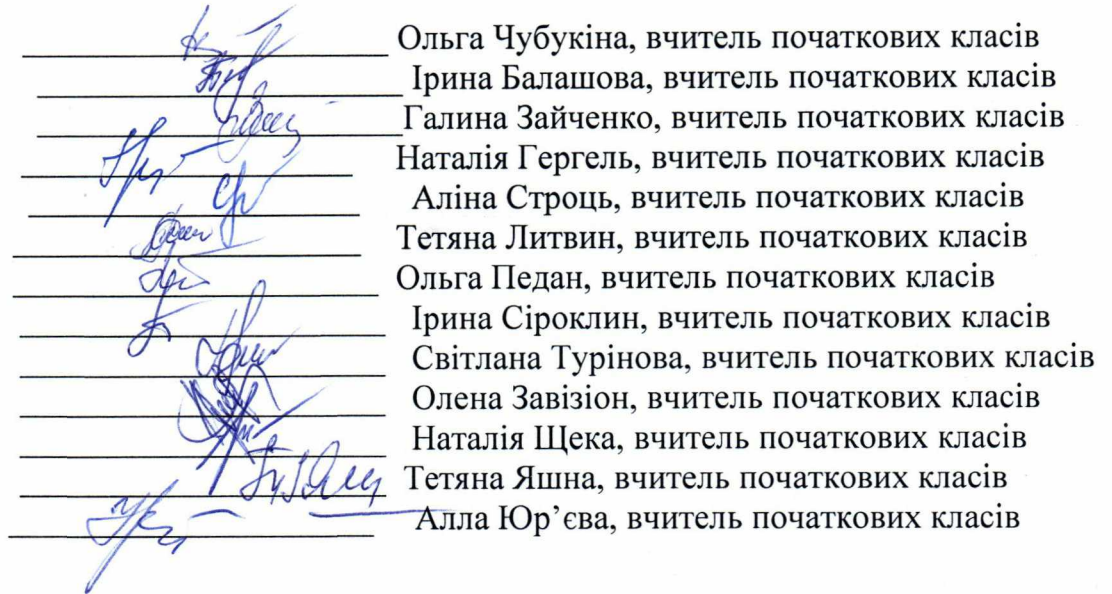 Ольга Чубукіна, вчитель початкових класів
Ірина Балашова, вчитель початкових класів
Галина Зайченко, вчитель початкових класів
Наталія Гергель, вчитель початкових класів
Аліна Строць, вчитель початкових класів
Тетяна Литвин, вчитель початкових класів
Ольга Педан, вчитель початкових класів
Ірина Сіроклин, вчитель початкових класів
Світлана Турінова, вчитель початкових класів
Олена Завізіон, вчитель початкових класів
Наталія Щека, вчитель початкових класів
Тетяна Яшна, вчитель початкових класів
Алла Юр’єва, вчитель початкових класів